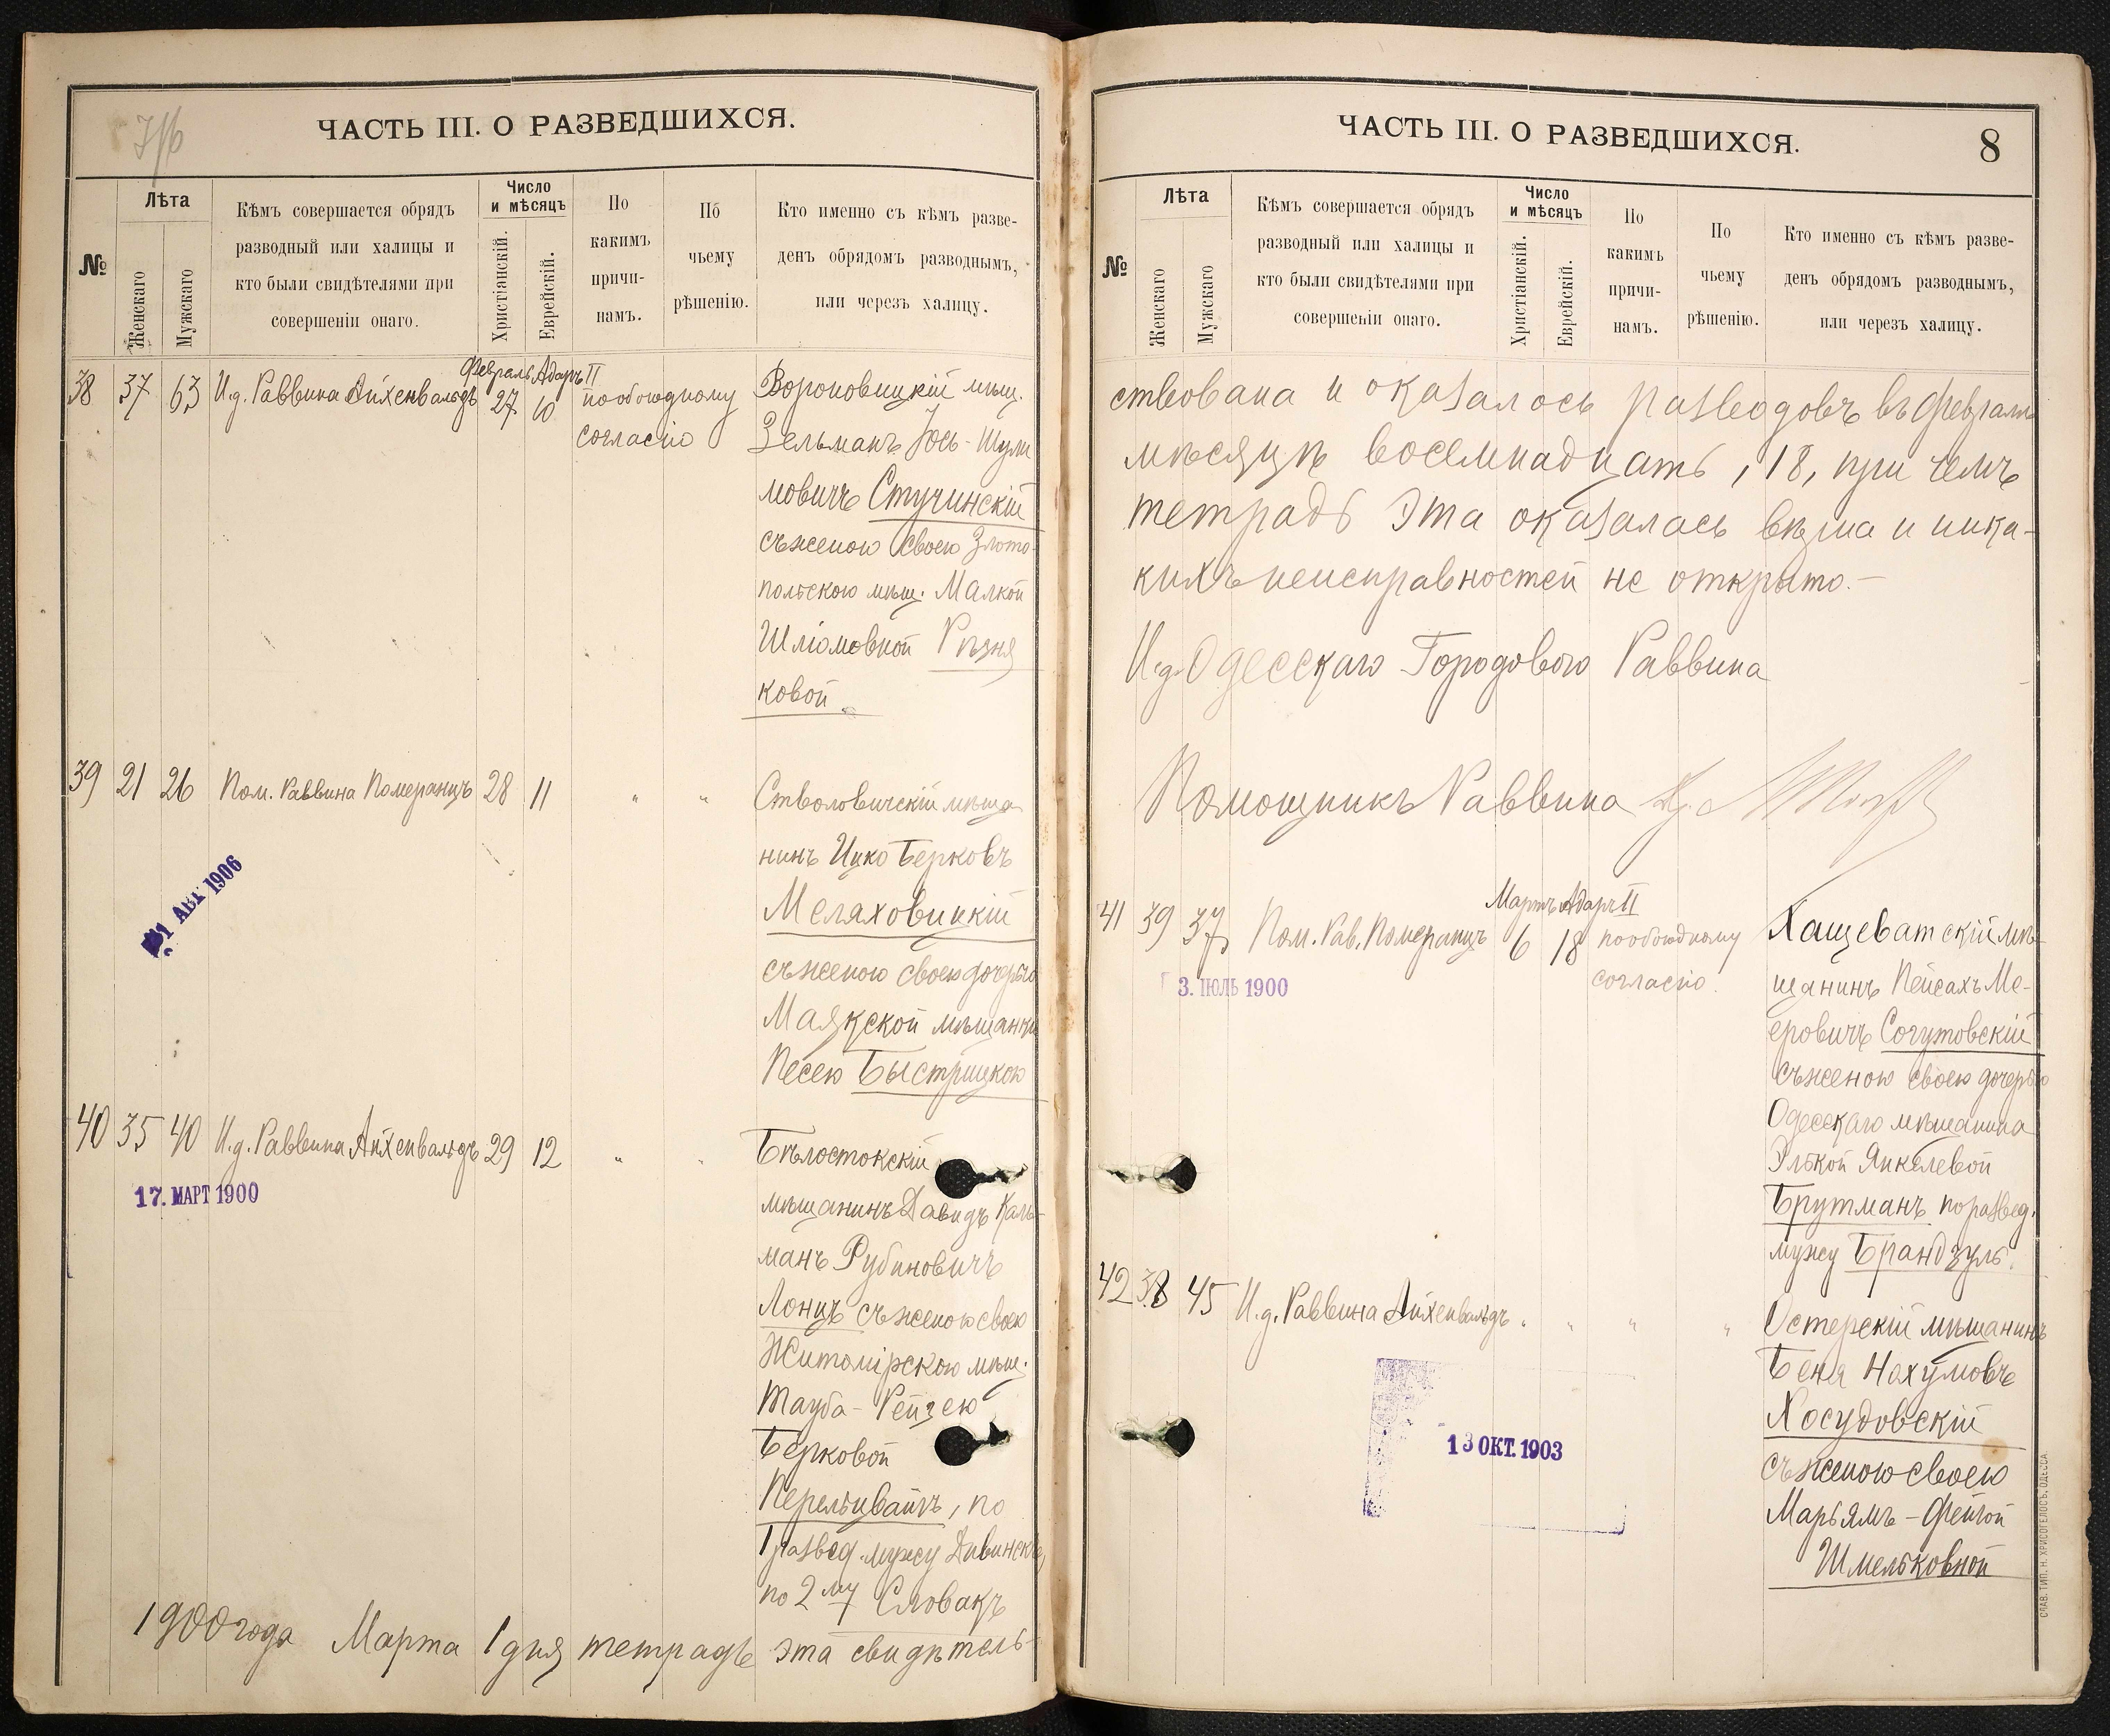 ЧАСТЬ III. О РАЗВЕДШИХСЯ.
№
Лѣта
Женскаго
Мужскаго
Кѣмъ совершается обрядъ
разводный или халицы и
кто были свидѣтелями при
совершеніи онаго.
Число
и мѣсяцъ
Христіанскій.
Еврейскій.
По
какимъ
причи-
намъ.
По
чьему
рѣшенію.
Кто именно съ кѣмъ разве-
денъ обрядомъ разводнымъ,
или черезъ халицу.
Февраль Адаръ II
38 37 63 И.д. Раввина Айхенвальдъ 27 10 по обоюдному
согласію
Вороновицкій мѣщ.
Зельманъ Іось-Шули
мовичъ Стучинскій
съ женою своею Злото-
польскою мѣщ. Малкой
Шліомовной Рѣзня
ковой
39 21 26 Пом. Раввина Померанцъ 28 11 " "
Стволовичскій мѣща
нинъ Ицко Берковъ
Меляховицкій
съ женою своею дочерью
Маякской мѣщанки
Песею Быстрицкою
1 АВГ 1906
40 35 40 И.д. Раввина Айхенвальдъ 29 12 " "
17. МАРТ 1900
Бѣлостокскій
мѣщанинъ Давидъ Каль-
манъ Рубиновичъ
Лонцъ съ женою своею
Житомірскою мѣщ.
Тауба-Рейзею
Берковой
Перельцвайгъ, по
1 развед. мужу Дивинскъ,
по 2му Словакъ
1900 года Марта 1 дня тетрадь эта свидѣтель-
ЧАСТЬ III. О РАЗВЕДШИХСЯ.
8
№
Лѣта
Женскаго
Мужскаго
Кѣмъ совершается обрядъ
разводный или халицы и
кто были свидѣтелями при
совершеніи онаго.
Число
и мѣсяцъ
Христіанскій.
Еврейскій.
По
какимъ
причи-
намъ.
По
чьему
рѣшенію.
Кто именно съ кѣмъ разве-
денъ обрядомъ разводнымъ,
или черезъ халицу.
ствована и оказалось разводовъ въ февралѣ
мѣсяцѣ восемнадцать, 18, при чемъ
тетрадь эта оказалась вѣрна и ника-
кихъ неисправностей не открыто.—
И.д. Одесскаго Городового Раввина
Помощникъ Раввина
Мартъ Адаръ II
41 39 37 Пом. Рав. Померанцъ 6 18 по обоюдному
согласію.
3. ІЮЛЬ 1900
Хащеватскій мѣ-
щанинъ Пейсахъ Ме-
еровичъ Согутовскій
съ женою своею дочерью
Одесскаго мѣщанина
Элькой Янкелевой
Брутманъ по развед.
мужу Брандзуль.
42 38 45 И.д. Раввина Айхенвальдъ " " " "
Остерскій мѣщанинъ
Беня Нахумовъ
Хосудовскій
съ женою своею
Марьямъ-Фейгой
Шмельковной
13 ОКТ. 1903
СЛАВ. ТИП. Н. ХРИСОГЕЛОСЪ, ОДЕССА.